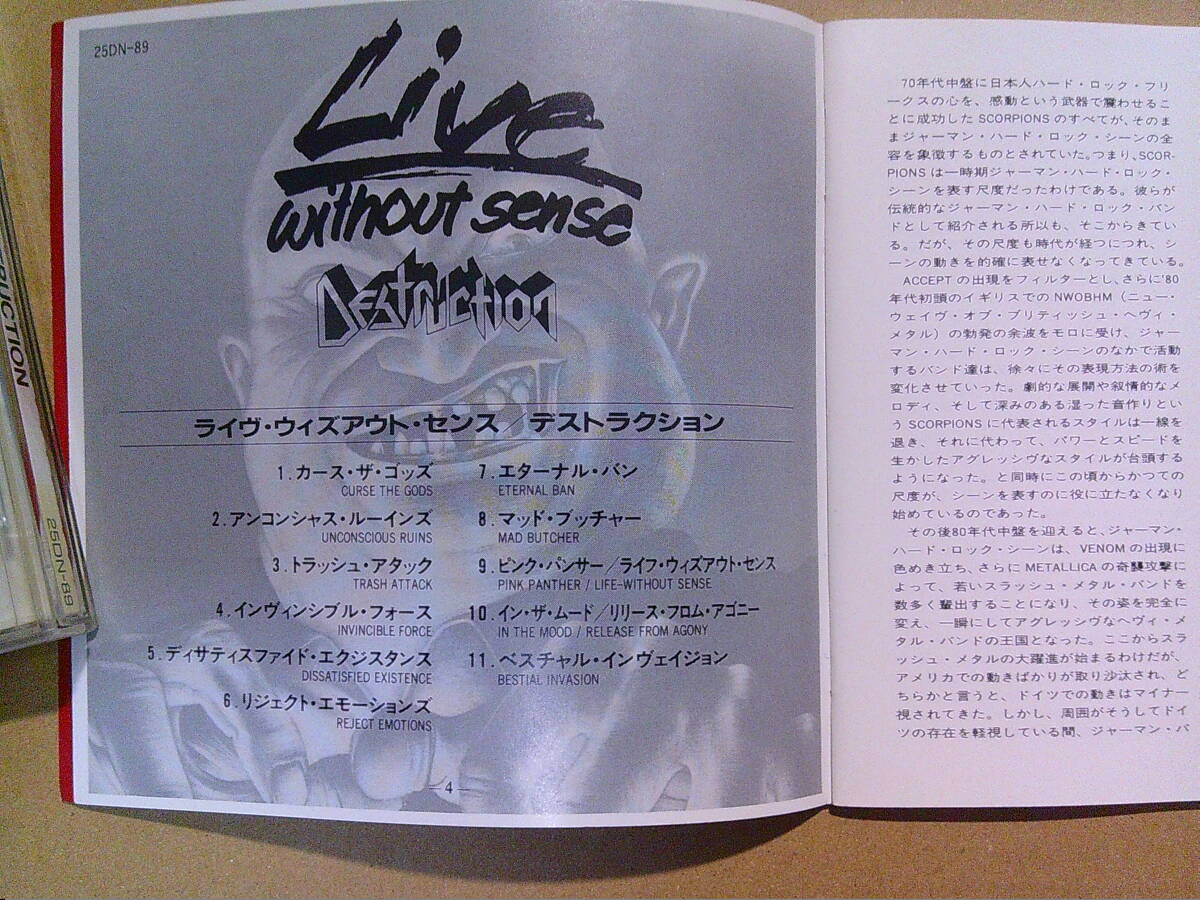 25DN-89
Live
without sense
DESTRUCTION
ライヴ・ウィズアウト・センス／デストラクション
1.カース・ザ・ゴッズ
CURSE THE GODS
2.アンコンシャス・ルーインズ
UNCONSCIOUS RUINS
3.トラッシュ・アタック
TRASH ATTACK
4.インヴィンシブル・フォース
INVINCIBLE FORCE
5.ディサティスファイド・エクジスタンス
DISSATISFIED EXISTENCE
6.リジェクト・エモーションズ
REJECT EMOTIONS
7.エターナル・バン
ETERNAL BAN
8.マッド・ブッチャー
MAD BUTCHER
9.ピンク・パンサー／ライフ・ウィズアウト・センス
PINK PANTHER / LIFE-WITHOUT SENSE
10.イン・ザ・ムード／リリース・フロム・アゴニー
IN THE MOOD / RELEASE FROM AGONY
11.ベスチャル・インヴェイジョン
BESTIAL INVASION
—4—
70年代中盤に日本人ハード・ロック・フリ
ークスの心を、感動という武器で震わせるこ
とに成功した SCORPIONS のすべてが、そのま
まジャーマン・ハード・ロック・シーンの全
容を象徴するものとされていた。つまり、SCOR-
PIONS は一時期ジャーマン・ハード・ロック・
シーンを表す尺度だったわけである。彼らが
伝統的なジャーマン・ハード・ロック・バン
ドとして紹介される所以も、そこからきてい
る。だが、その尺度も時代が経つにつれ、シ
ーンの動きを的確に表せなくなってきている。
ACCEPT の出現をフィルターとし、さらに'80
年代初頭のイギリスでの NWOBHM（ニュー・
ウェイヴ・オブ・ブリティッシュ・ヘヴィ・
メタル）の勃発の余波をモロに受け、ジャー
マン・ハード・ロック・シーンのなかで活動
するバンド達は、徐々にその表現方法の術を
変化させていった。劇的な展開や叙情的なメ
ロディ、そして深みのある湿った音作りとい
う SCORPIONS に代表されるスタイルは一線を
退き、それに代わって、パワーとスピードを
生かしたアグレッシヴなスタイルが台頭する
ようになった。と同時にこの頃からかつての
尺度が、シーンを表すのに役に立たなくなり
始めているのであった。
その後80年代中盤を迎えると、ジャーマン・
ハード・ロック・シーンは、VENOM の出現に
色めき立ち、さらに METALLICA の奇襲攻撃に
よって、若いスラッシュ・メタル・バンドを
数多く輩出することになり、その姿を完全に
変え、一瞬にしてアグレッシヴなヘヴィ・メ
タル・バンドの王国となった。ここからスラ
ッシュ・メタルの大躍進が始まるわけだが、
アメリカでの動きばかりが取り沙汰され、ど
ちらかと言うと、ドイツでの動きはマイナー
視されてきた。しかし、周囲がそうしてドイ
ツの存在を軽視している間、ジャーマン・バ
RUCTION
25DN-89